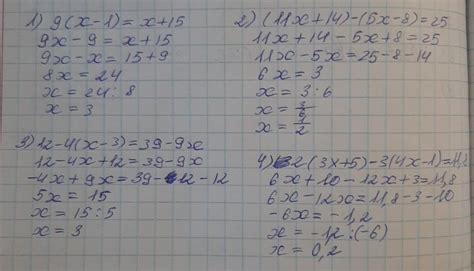 1) 9(x-1)=x+15
9x-9=x+15
9x-x=15+9
8x=24
x=24:8
x=3
2) (11x+14)-(5x-8)=25
11x+14-5x+8=25
11x-5x=25-8-14
6x=3
x=3:6
x=3/6
x=1/2
3) 12-4(x-3)=39-9x
12-4x+12=39-9x
-4x+9x=39-12-12
5x=15
x=15:5
x=3
4) 2(3x+5)-3(4x-1)=11,8
6x+10-12x+3=11,8
6x-12x=11,8-3-10
-6x=-1,2
x=-1,2:(-6)
x=0,2